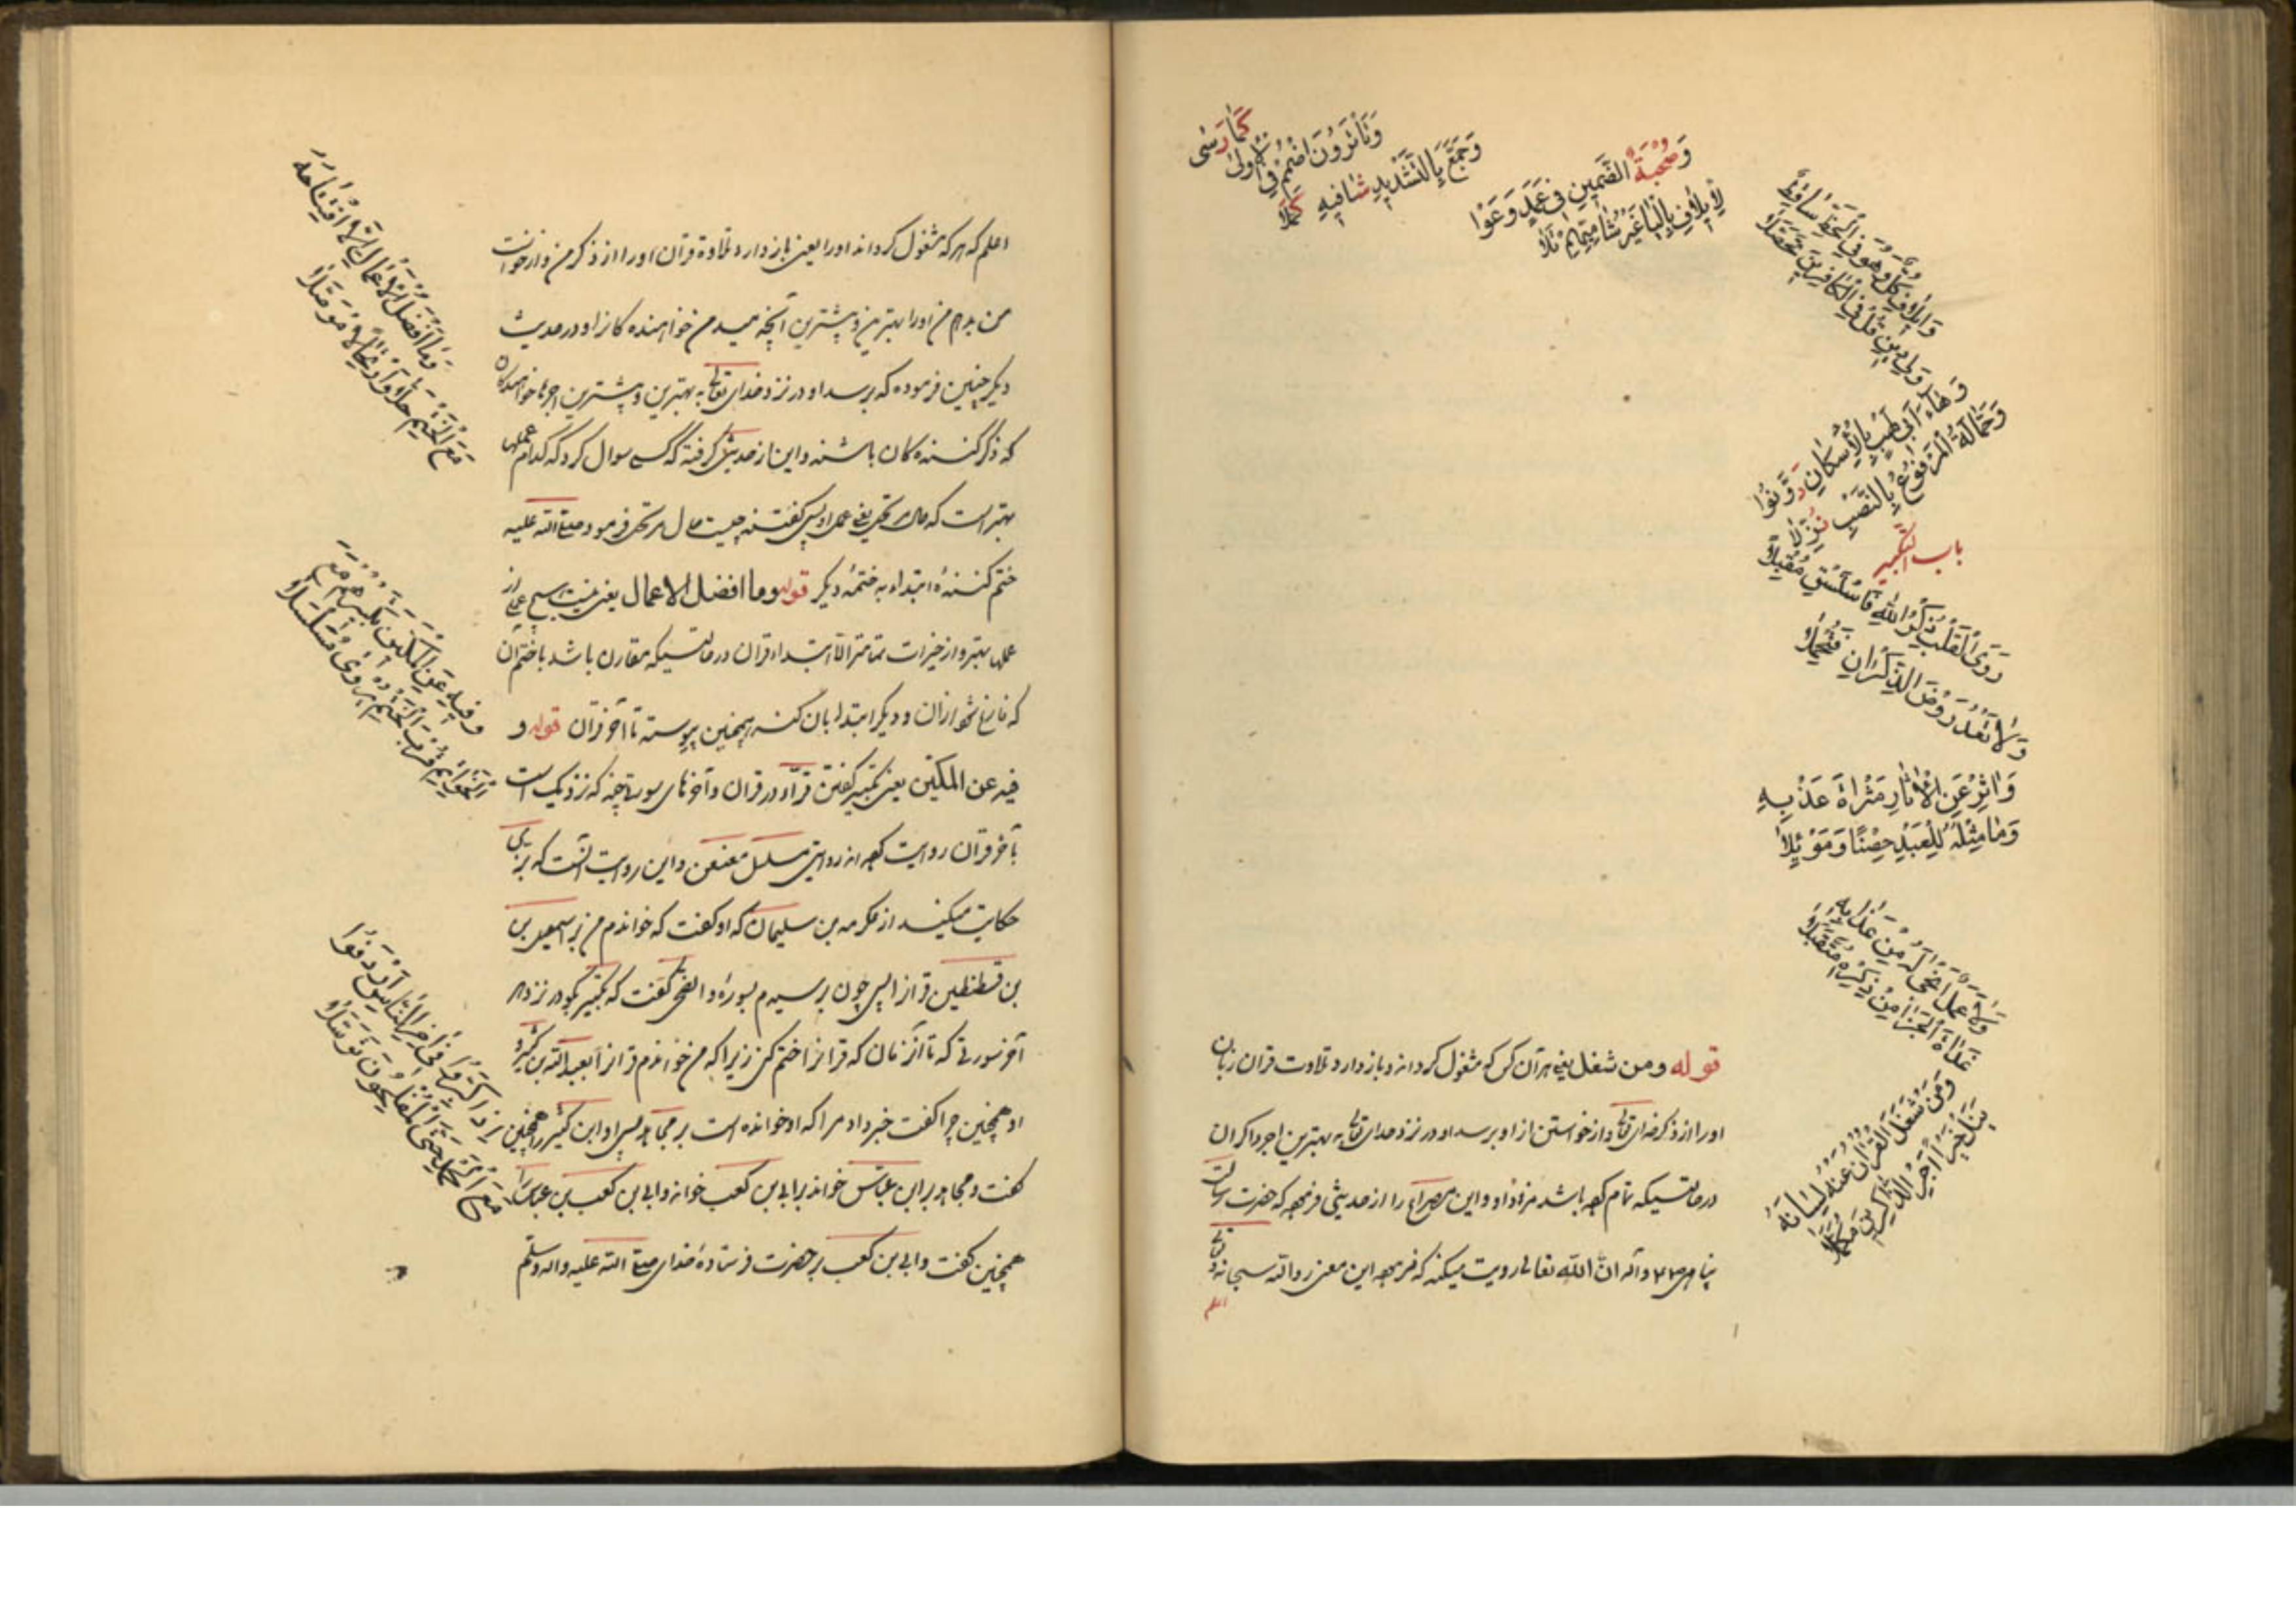 وَصُحْبَةٌ الضَّمَّيْنِ فِي عَمَدٍ وَعَوْا
لِإِيلَافِ بِالْيَا غَيْرُ شَامِيِّهِمْ تَلَا
وَإِيلَافِ كُلٌّ وَهُوَ فِي الْخَطِّ سَاقِطٌ
وَلِي دِينِ قُلْ فِي الْكَافِرِينَ تَحَصَّلَا
وَهَاءَ أَبِي لَهْبٍ بِالْإِسْكَانِ دَوَّنُوا
وَحَمَّالَةُ الْمَرْفُوعُ بِالنَّصْبِ نُزِّلَا
باب التكبير
رَوَى الْقَلْبِ ذِكْرُ اللَّهِ فَاسْتَسْقِ مُقْبِلَا
وَلَا تَعْدُ رَوْضَ الذَّاكِرِينَ فَتُمْحِلَا
وَآثِرْ عَنِ الْآثَارِ مَثْرَاةَ عَذْبِهِ
وَمَا مِثْلُهُ لِلْعَبْدِ حِصْنًا وَمَوْئِلَا
وَلَا عَمَلٌ أَنْجَى لَهُ مِنْ عَذَابِهِ
غَدَاةَ الْجَزَا مِنْ ذِكْرِهِ مُتَقَبَّلَا
وَمَنْ شَغَلَ الْقُرْآنُ عَنْهُ لِسَانَهُ
يَنَلْ خَيْرَ أَجْرِ الذَّاكِرِينَ مُكَمَّلَا
وَجَمَّعَ بِالتَّشْدِيدِ شَافِيهِ كَمَّلَا
قوله ومن شغل یعنی هر آن کس که مشغول کرداند و باز دارد تلاوت قران زبان
اورا از ذکر خدای تعالی و از خواستن از او برسد او در نزد خدای تعالی به بهترین اجر ذاکران
در حالتیکه تمام باشد مزد او و این مصراع را از حدیثی که حضرت رسالت
پناهی و آله ان الله تعالی روایت میکند که این معنی والله سبحانه و تعالی
اعلم
اعلم که هر که مشغول کرداند اورا یعنی باز دارد تلاوة قرآن اورا از ذکر من و از خواست
من بدهم من اورا بهترین و بیشترین آنچه میدهم خواهنده کانرا و در حدیث
دیکر چنین فرموده که برسد او در نزد خدای تعالی به بهترین و بیشترین اجرها خواهندکان
که ذکر کننده کان باشند و این از حدیثی کرفته که کسی سوال کرد که کدام عملها
بهتر است که حال مرتحل یعنی عمل او پس کفتند چیست حال مرتحل فرمود صلی الله علیه
ختم کننده ابتداء به ختمه دیکر قوله وما افضل الاعمال یعنی نیست هیچ عمل از
عملها بهتر و از خیرات تمامتر الا ابتداء قران در حالتیکه مقارن باشد با ختم آن
که فارغ شود از آن و دیکر ابتدا بان کند همچنین پیوسته تا آخر قرآن قوله و
فیه عن المکین یعنی تکبیر کفتن قراء در قران و آخرهای سورتها چند که نزدیک است
بآخر قرآن روایت اند روایتی مسلسل معنعن و این روایت آنست که بزی
حکایت میکند از عکرمه بن سلیمان که او کفت که خواندم من بر اسمعیل بن
بن قسطنطین قرآن پس چون برسیدم بسورهٔ والضحی کفت که تکبیر بکو در نزد
آخر سورتی که تا آنزمان که قرانرا ختم کنی زیرا که من خواندم قرانرا بعبد الله بن کثیر و
او همچنین چرا کفت خبر داد مرا که او خوانده است بر مجاهد پس او ابن کثیر را همچنین
کفت و مجاهد بر ابن عباس خواند بر ابی بن کعب خواند و ابی بن کعب بن عباس را
همچنین کفت و ابی بن کعب بر حضرت فرستادهٔ خدای صلی الله علیه واله وسلم
وَمَا أَفْضَلُ الْأَعْمَالِ إِلَّا افْتِتَاحَهُ
مَعَ الْخَتْمِ حِلًّا وَارْتِحَالًا مُوَصَّلَا
وَفِيهِ عَنِ الْمَكِّينَ تَكْبِيرُهُمْ مَعَ
الْخَوَاتِمِ قُرْبَ الْخَتْمِ يُرْوَى مُسَلْسَلَا
إِذَا كَبَّرُوا فِي آخِرِ النَّاسِ أَرْدَفُوا
مَعَ الْحَمْدِ حَتَّى الْمُفْلِحُونَ تَوَسُّلَا